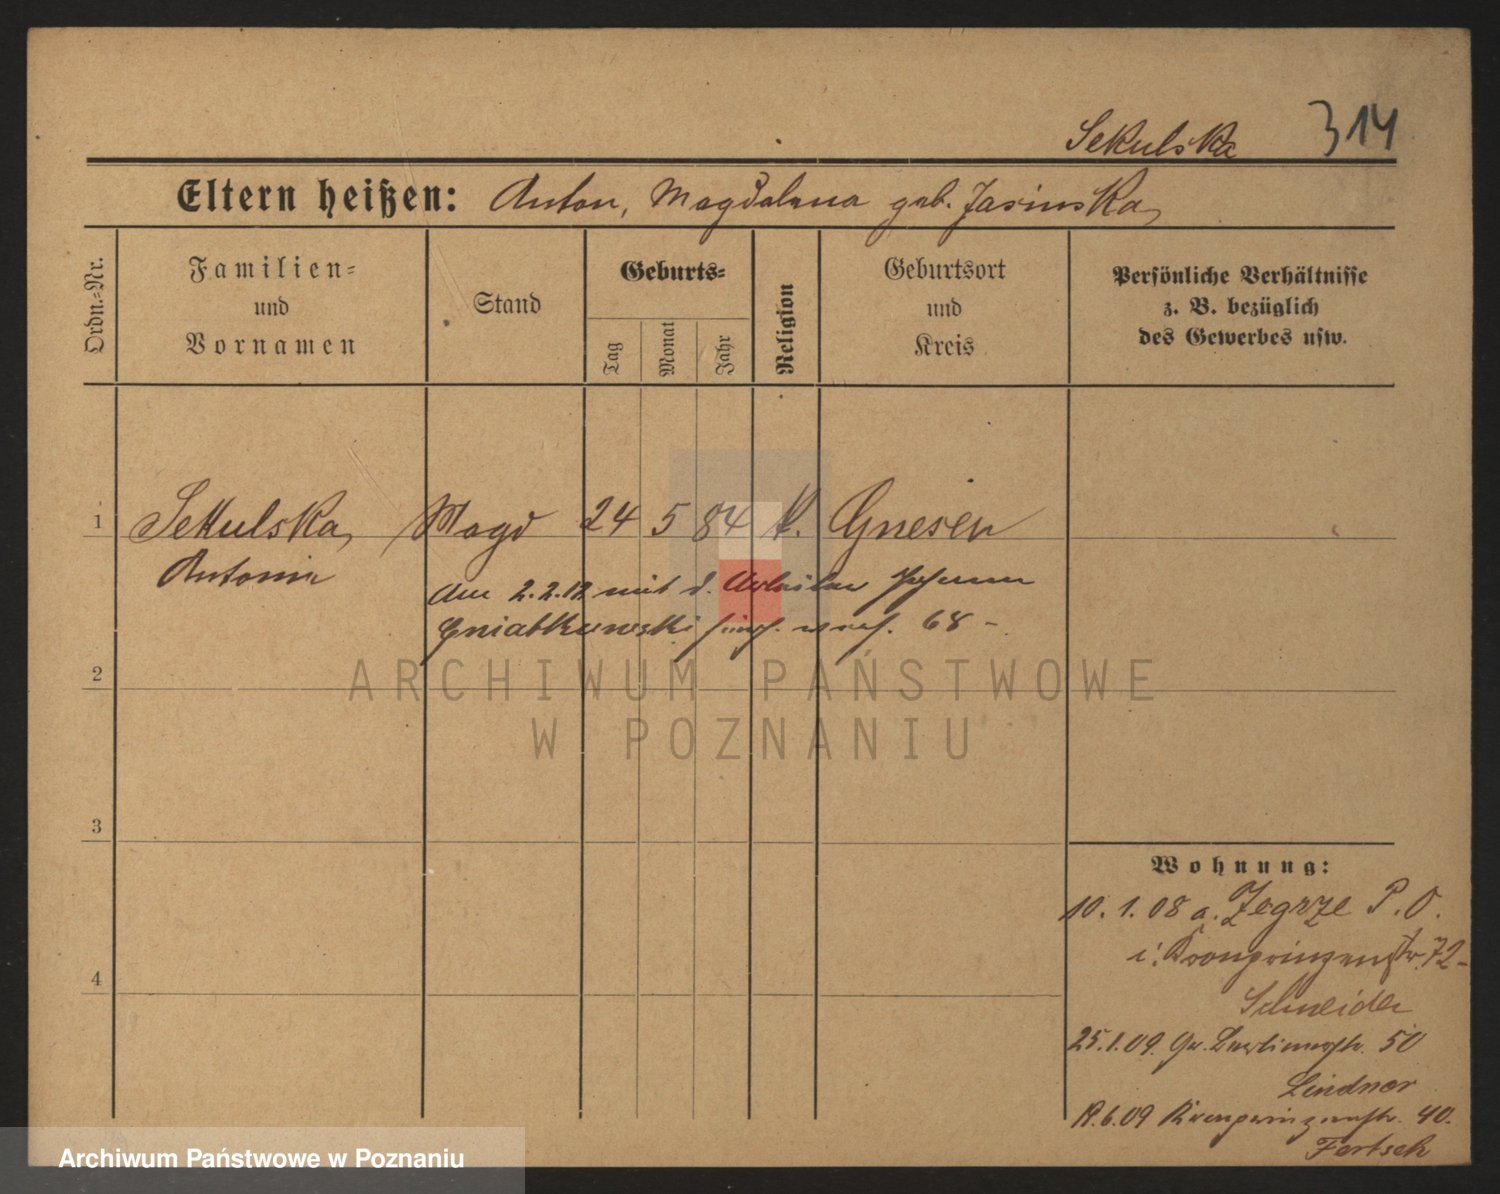 Sekulska 314
Eltern heißen: Anton, Magdalena geb. Jasinska
Ordn.-Nr.
Familien-
und
Vornamen
Stand
Geburts-
Tag
Monat
Jahr
Religion
Geburtsort
und
Kreis
Persönliche Verhältnisse
z. B. bezüglich
des Gewerbes usw.
1 Sekulska, Magd 24 5 84 k. Gnesen
Antonie
am 2.2.12 mit d. Arbeiter Johann
Gniatkowski hies. 68 -
2
ARCHIWUM PAŃSTWOWE
W POZNANIU
3
4
Wohnung:
10. 1. 08 a. Zegrze P. O.
i. Kronprinzenstr. 72-
Schneider
25.1.09. Gr. Berlinerstr. 50
Lindner
6.09 Kronprinzenstr. 40.
Fertsch
Archiwum Państwowe w Poznaniu